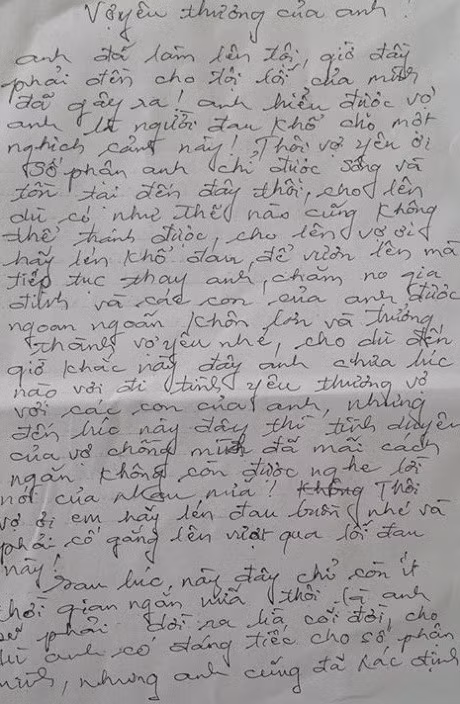 Vợ yêu thương của anh!
anh đã lầm lên tội, giờ đây
phải đền cho tội lỗi của mình
đã gây ra! anh hiểu được vợ
anh là người đau khổ cho một
nghịch cảnh này! Thôi vợ yên ơi
số phân anh chỉ được sống và
tồn tại đến đây thôi, cho lên
dù có như thế nào cũng không
thể tránh được, cho lên vợ ơi
hãy lén khổ đau, để vươn lên mà
tiếp tục thay anh, chăm no gia
đình và các con của anh được
ngoan ngoãn khôn lớn và trưởng
thành vợ yêu nhé, cho dù đến
giờ khắc này đây anh chưa lúc
nào vơi đi tình yêu thương vợ
với các con của anh, nhưng
đến lúc này đây thì tình duyên
của vợ chồng mình đã mãi cách
ngăn không còn được nghe lời
nói của nhau nữa! Thôi
vợ ơi em hãy lén đau buồn nhé và
phải cố gắng lên vượt qua lỗi đau
này!
sau lúc, này đây chỉ còn ít
thời gian ngắn nữa thôi là anh
sẽ phải dời ra là cõi đời, cho
dù anh có đáng tiếc cho số phân
mình, nhưng anh cũng đã xác định